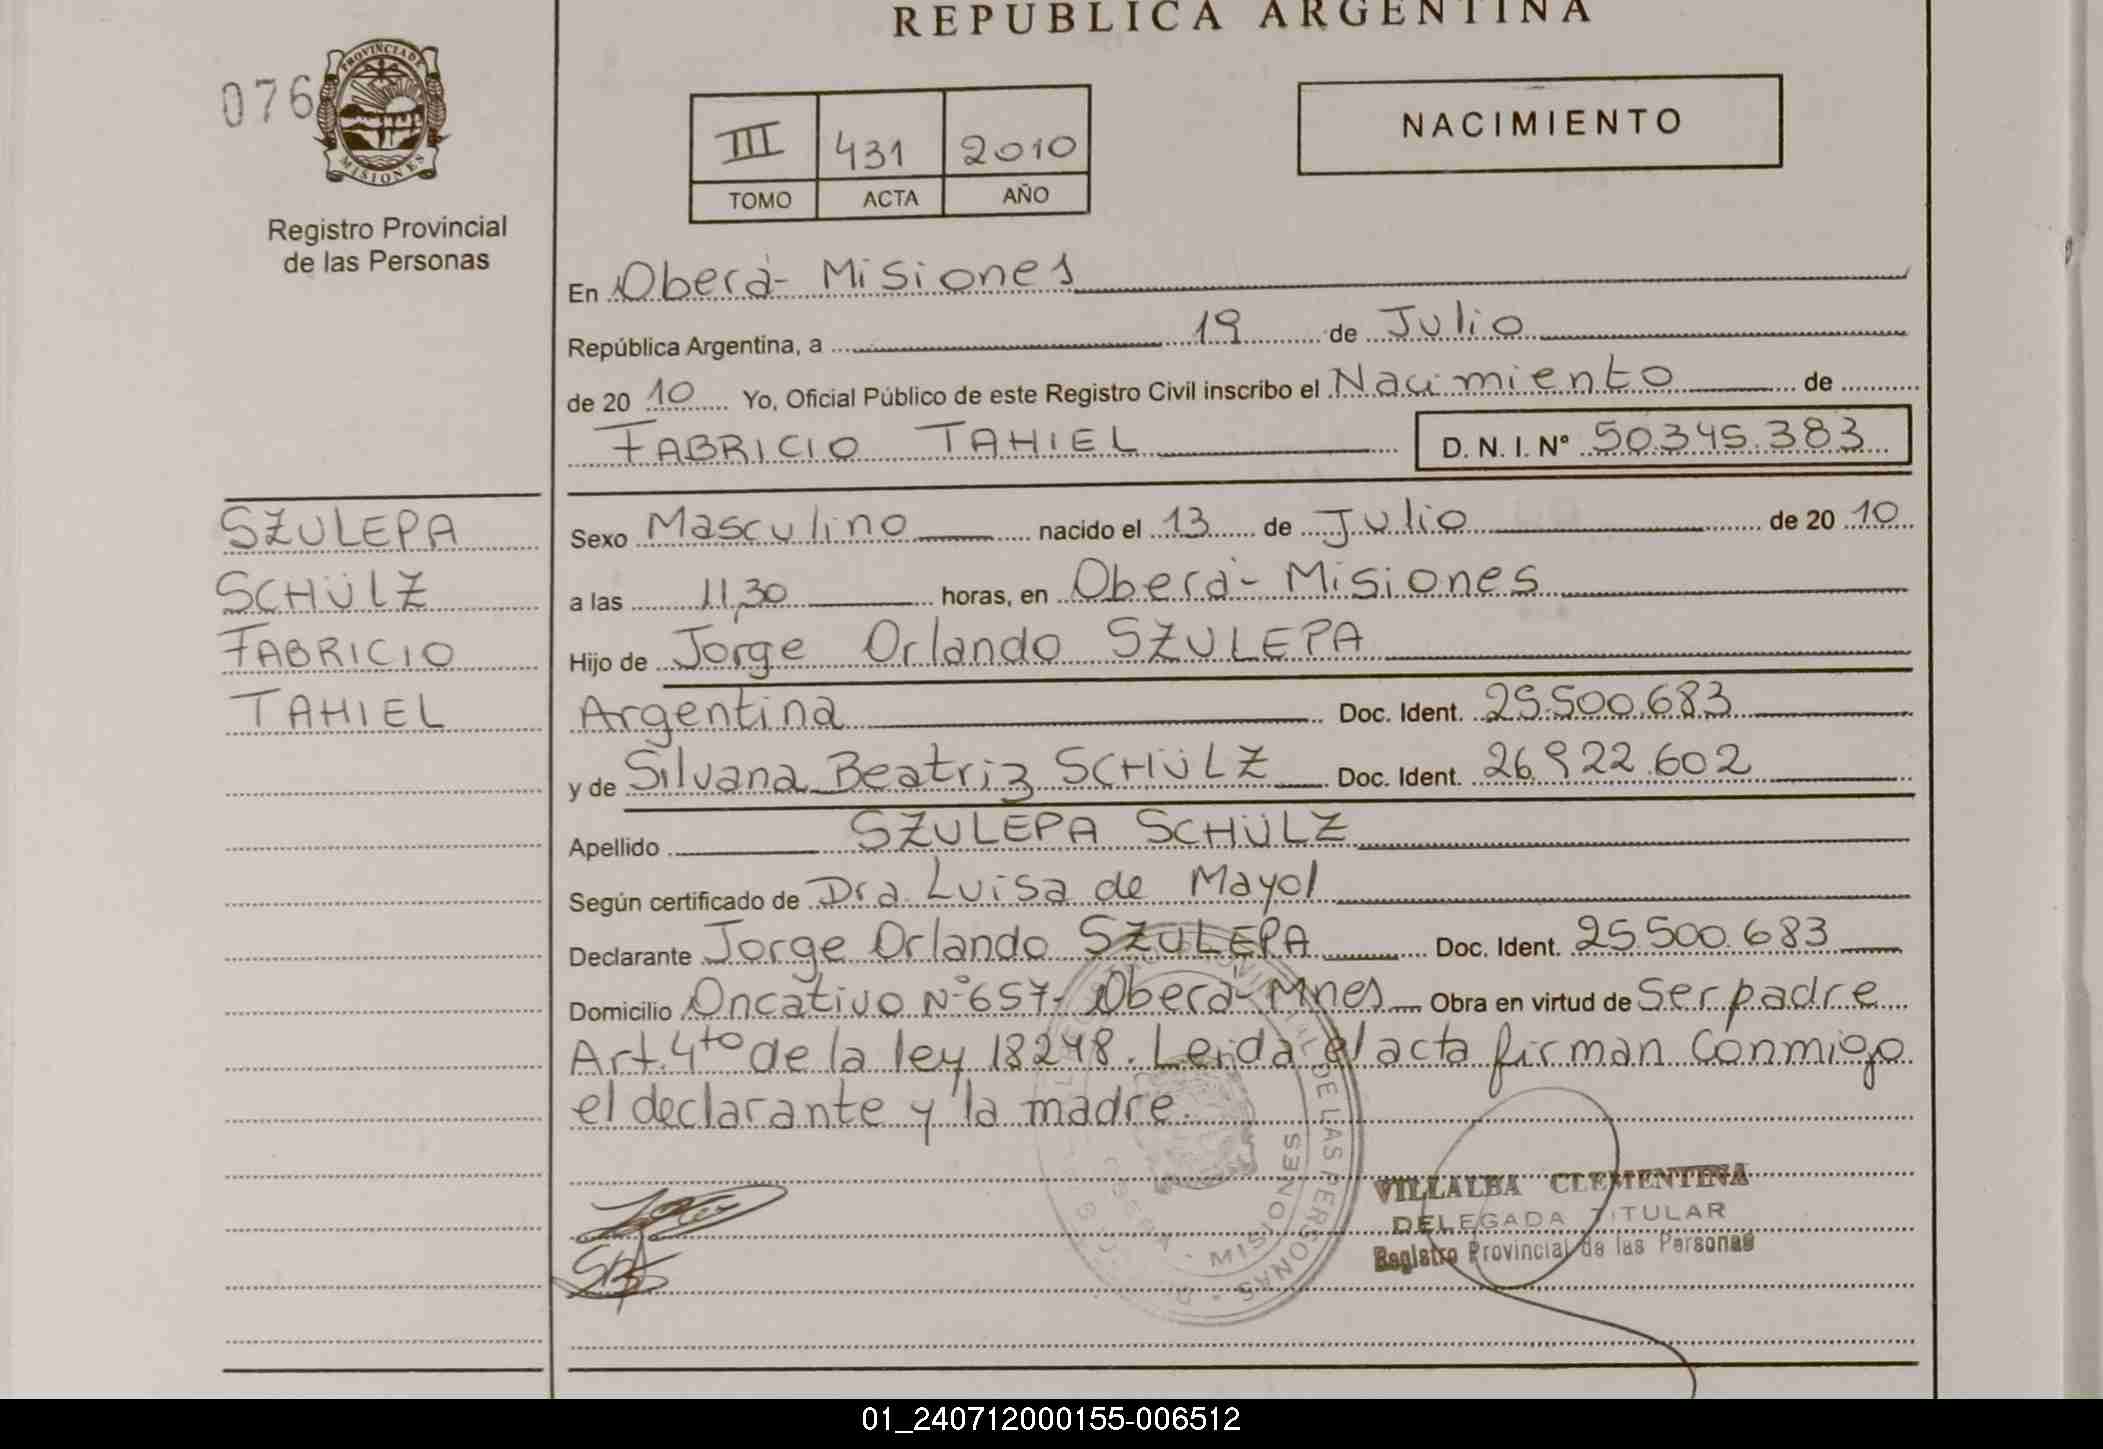 REPUBLICA ARGENTINA
076
PROVINCIA DE
MISIONES
Registro Provincial
de las Personas
III 431 2010
TOMO ACTA AÑO
NACIMIENTO
En Oberá - Misiones
República Argentina, a 19 de Julio
de 2010 Yo, Oficial Público de este Registro Civil inscribo el Nacimiento de
FABRICIO TAHIEL D. N. I. N° 50.345.383
SZULEPA
SCHÜLZ
FABRICIO
TAHIEL
Sexo Masculino nacido el 13 de Julio de 2010
a las 11,30 horas, en Oberá - Misiones
Hijo de Jorge Orlando SZULEPA
Argentina Doc. Ident. 25.500.683
y de Silvana Beatriz SCHÜLZ Doc. Ident. 26.922.602
Apellido SZULEPA SCHÜLZ
Según certificado de Dra. Luisa de Mayol
Declarante Jorge Orlando SZULEPA Doc. Ident. 25.500.683
Domicilio Oncativo N° 657 - Oberá - Mnes Obra en virtud de Ser padre
Art. 4to de la ley 18248. Leida el acta firman Conmigo
el declarante y la madre.
DE LAS PERSONAS
MISIONES
VILLALBA CLEMENTINA
DELEGADA TITULAR
Registro Provincial de las Personas
01_240712000155-006512